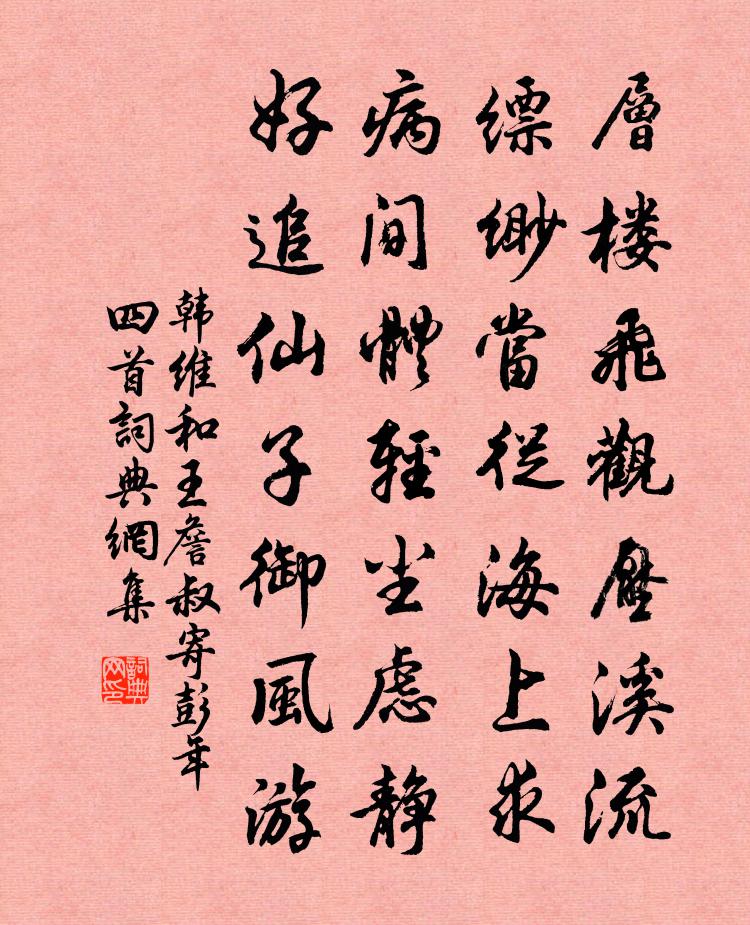 層楼飛觀壓溪流
缥缈當從海上求
病间體輕尘慮静
好追仙子御風游
韩維和王詹叔寄彭年
四首詞典網集
詞典網印